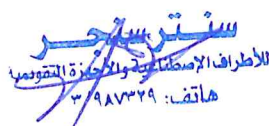 سنتر ستجر
للأطراف الإصطناعية والأجهزة التقويمية
هاتف: ٣٩٨٧٣٢٩